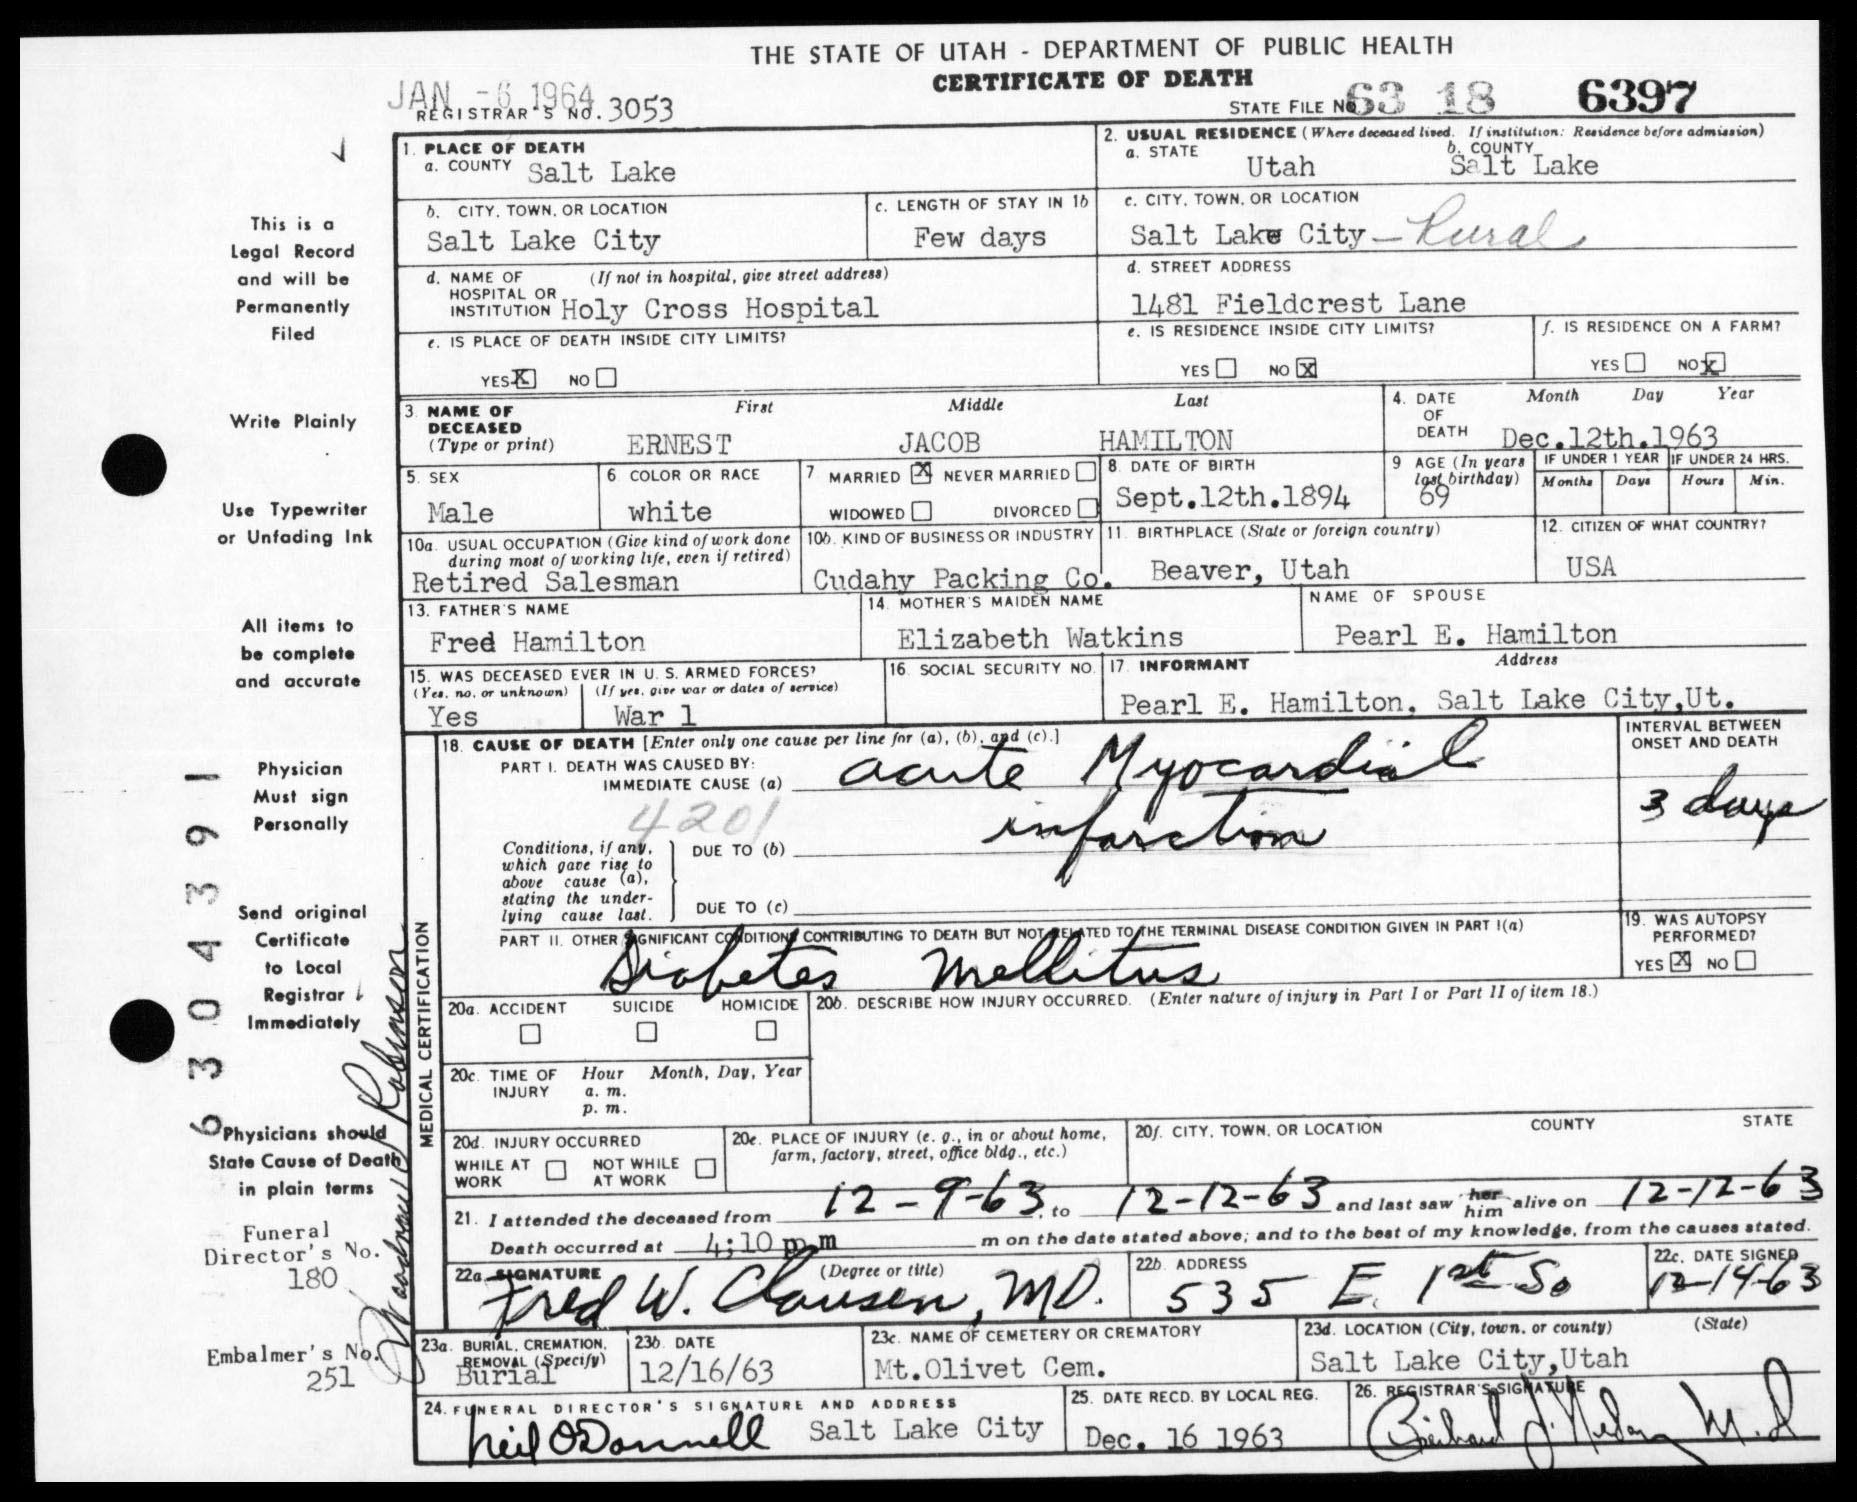 THE STATE OF UTAH - DEPARTMENT OF PUBLIC HEALTH
CERTIFICATE OF DEATH
JAN -6 1964
REGISTRAR'S NO. 3053
STATE FILE NO. 63 18 6397
1. PLACE OF DEATH
a. COUNTY Salt Lake
2. USUAL RESIDENCE (Where deceased lived. If institution: Residence before admission)
a. STATE Utah b. COUNTY Salt Lake
b. CITY, TOWN, OR LOCATION Salt Lake City
c. LENGTH OF STAY IN 1b Few days
c. CITY, TOWN, OR LOCATION Salt Lake City - Rural
d. NAME OF HOSPITAL OR INSTITUTION (If not in hospital, give street address) Holy Cross Hospital
d. STREET ADDRESS 1481 Fieldcrest Lane
e. IS PLACE OF DEATH INSIDE CITY LIMITS?
YES X NO
e. IS RESIDENCE INSIDE CITY LIMITS?
YES NO X
f. IS RESIDENCE ON A FARM?
YES NO X
3. NAME OF DECEASED (Type or print) First Middle Last
ERNEST JACOB HAMILTON
4. DATE OF DEATH Month Day Year
Dec.12th.1963
5. SEX Male
6. COLOR OR RACE white
7. MARRIED X NEVER MARRIED
WIDOWED DIVORCED
8. DATE OF BIRTH Sept.12th.1894
9 AGE (In years last birthday) 69
IF UNDER 1 YEAR Months Days
IF UNDER 24 HRS. Hours Min.
10a. USUAL OCCUPATION (Give kind of work done during most of working life, even if retired)
Retired Salesman
10b. KIND OF BUSINESS OR INDUSTRY
Cudahy Packing Co.
11. BIRTHPLACE (State or foreign country)
Beaver, Utah
12. CITIZEN OF WHAT COUNTRY?
USA
13. FATHER'S NAME
Fred Hamilton
14. MOTHER'S MAIDEN NAME
Elizabeth Watkins
NAME OF SPOUSE
Pearl E. Hamilton
15. WAS DECEASED EVER IN U. S. ARMED FORCES?
(Yes, no, or unknown) (If yes, give war or dates of service)
Yes War 1
16. SOCIAL SECURITY NO.
17. INFORMANT Address
Pearl E. Hamilton, Salt Lake City,Ut.
MEDICAL CERTIFICATION
18. CAUSE OF DEATH [Enter only one cause per line for (a), (b), and (c).]
INTERVAL BETWEEN ONSET AND DEATH
PART I. DEATH WAS CAUSED BY:
IMMEDIATE CAUSE (a) acute Myocardial
infarction
3 days
4201
Conditions, if any, which gave rise to above cause (a), stating the underlying cause last.
DUE TO (b)
DUE TO (c)
PART II. OTHER SIGNIFICANT CONDITIONS CONTRIBUTING TO DEATH BUT NOT RELATED TO THE TERMINAL DISEASE CONDITION GIVEN IN PART I(a)
Diabetes Mellitus
19. WAS AUTOPSY PERFORMED?
YES X NO
20a. ACCIDENT SUICIDE HOMICIDE
20b. DESCRIBE HOW INJURY OCCURRED. (Enter nature of injury in Part I or Part II of item 18.)
20c. TIME OF INJURY Hour Month, Day, Year
a. m.
p. m.
20d. INJURY OCCURRED
WHILE AT WORK NOT WHILE AT WORK
20e. PLACE OF INJURY (e. g., in or about home, farm, factory, street, office bldg., etc.)
20f. CITY, TOWN, OR LOCATION COUNTY STATE
21. I attended the deceased from 12-9-63, to 12-12-63 and last saw her him alive on 12-12-63
Death occurred at 4;10 p m m on the date stated above; and to the best of my knowledge, from the causes stated.
22a. SIGNATURE (Degree or title)
Fred W. Clausen, MD.
22b. ADDRESS
535 E. 1st So
22c. DATE SIGNED
12-14-63
23a. BURIAL, CREMATION, REMOVAL (Specify)
Burial
23b. DATE
12/16/63
23c. NAME OF CEMETERY OR CREMATORY
Mt.Olivet Cem.
23d. LOCATION (City, town, or county) (State)
Salt Lake City,Utah
24. FUNERAL DIRECTOR'S SIGNATURE AND ADDRESS
Neil O'Donnell Salt Lake City
25. DATE RECD. BY LOCAL REG.
Dec. 16 1963
26. REGISTRAR'S SIGNATURE
M.D
This is a
Legal Record
and will be
Permanently
Filed
Write Plainly
Use Typewriter
or Unfading Ink
All items to
be complete
and accurate
Physician
Must sign
Personally
Send original
Certificate
to Local
Registrar
Immediately
Physicians should
State Cause of Death
in plain terms
Funeral
Director's No.
180
Embalmer's No.
251
Robinson
6304391